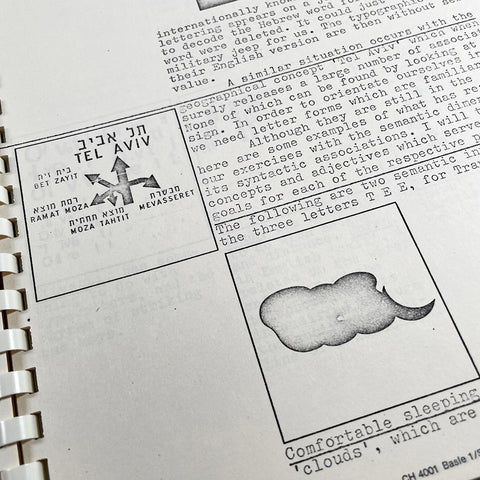 internationally know
lettering appears on a J
to decode the Hebrew word fo
word were deleted. It could just
military jeep for us. The typographi
their English version are then without se
value. A similar situation occurs with the
geographical concept, Tel Aviv, which when
surely releases a large number of associat
None of which can be found by looking at
sign. In order to orientate ourselves in
we need letter forms which are familiar
Although they are still in the
here are some examples of what has res
our exercises with the semantic dimen
its syntactic associations. I will
concepts and adjectives which serve
goals for each of the respective D
The following are two semantic in
the three letters T E E, for Tra
תל אביב
TEL AVIV
בית זית
BET ZAYIT
רמת מוצא
RAMAT MOZA
מוצא תחתית
MOZA TAHTIT
מבשרת
MEVASSERET
Comfortable sleeping
'clouds', which are
CH 4001 Basle 1/S